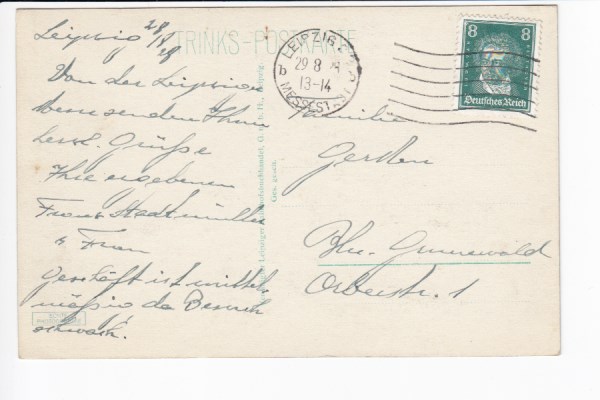 Leipzig 28/8 29
TRINKS-POSTKARTE
Von der Leipziger
Messe senden Ihnen
herzl. Grüße
Ihre ergebenen
Franz Stadtmüller
u Frau
Geschäft ist mittel
mässig da Besuch
schwach.
LEIPZIG
29 8 29
13-14
b
MESSESTADT
8 8
Deutsches Reich
Familie
Gerdten
Bln.-Grunewald
Orberstr. 1
Ges. gesch.